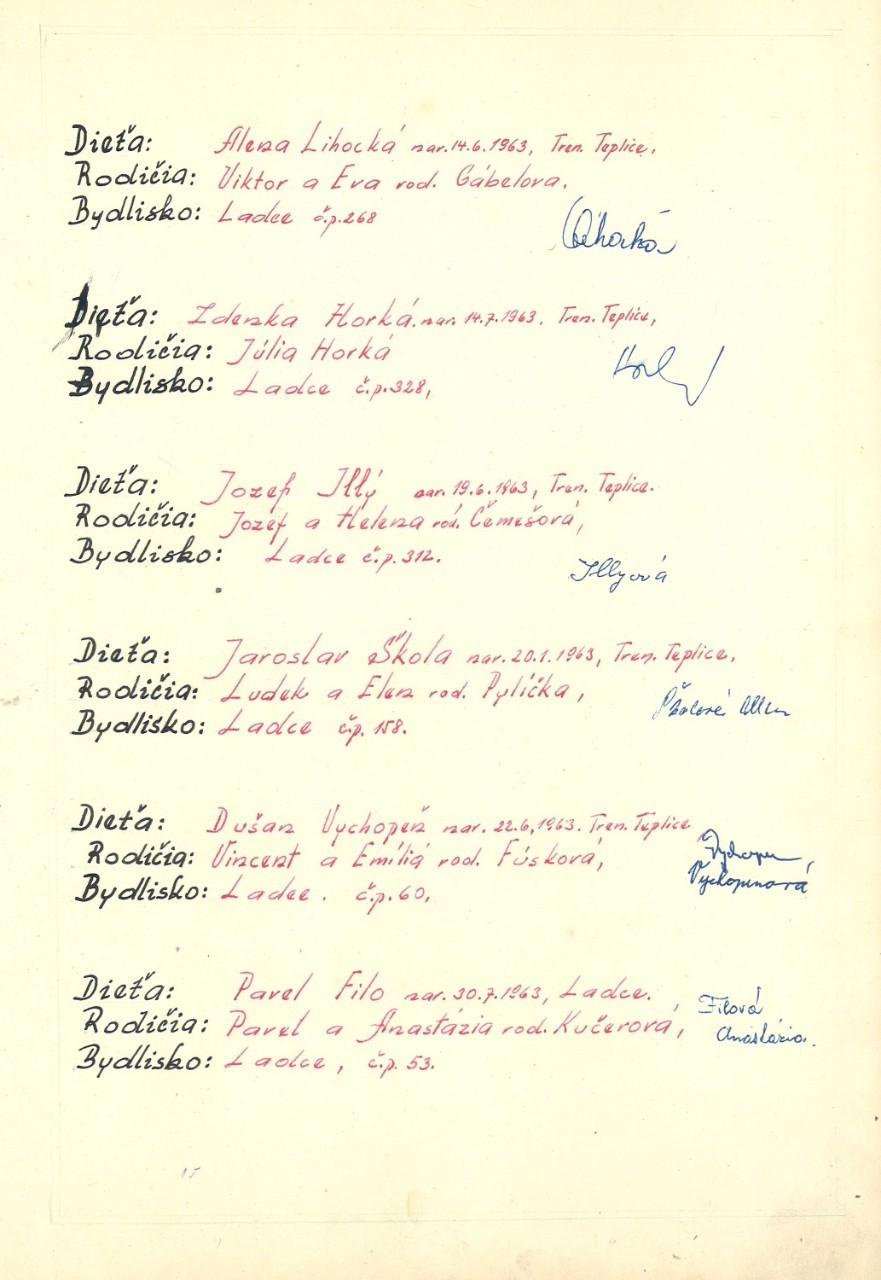 Dieťa: Alena Lihocká nar. 14.6.1963, Tren. Teplice.
Rodičia: Viktor a Eva rod. Gábelova.
Bydlisko: Ladce č.p. 268
Dieťa: Zdenka Horká. nar. 14.7.1963. Tren. Teplice,
Rodičia: Júlia Horká
Bydlisko: Ladce č.p. 328,
Dieťa: Jozef Illý nar. 19.6.1963, Tren. Teplice.
Rodičia: Jozef a Helena rod. Čemešová,
Bydlisko: Ladce č.p. 312.
Illyová
Dieťa: Jaroslav Škola nar. 20.1.1963, Tren. Teplice.
Rodičia: Ludek a Elen rod. Pylíčka,
Bydlisko: Ladce č.p. 158.
Dieťa: Dušan Vychopeň nar. 22.6,1963. Tren. Teplice
Rodičia: Vincent a Emíliá rod. Fúsková,
Vychopen,
Vychopenová
Bydlisko: Ladce. č.p. 60,
Dieťa: Pavel Filo nar. 30.7.1963, Ladce.
Filová
Rodičia: Pavel a Anastázia rod. Kučerová,
Anastázia.
Bydlisko: Ladce, č.p. 53.
15